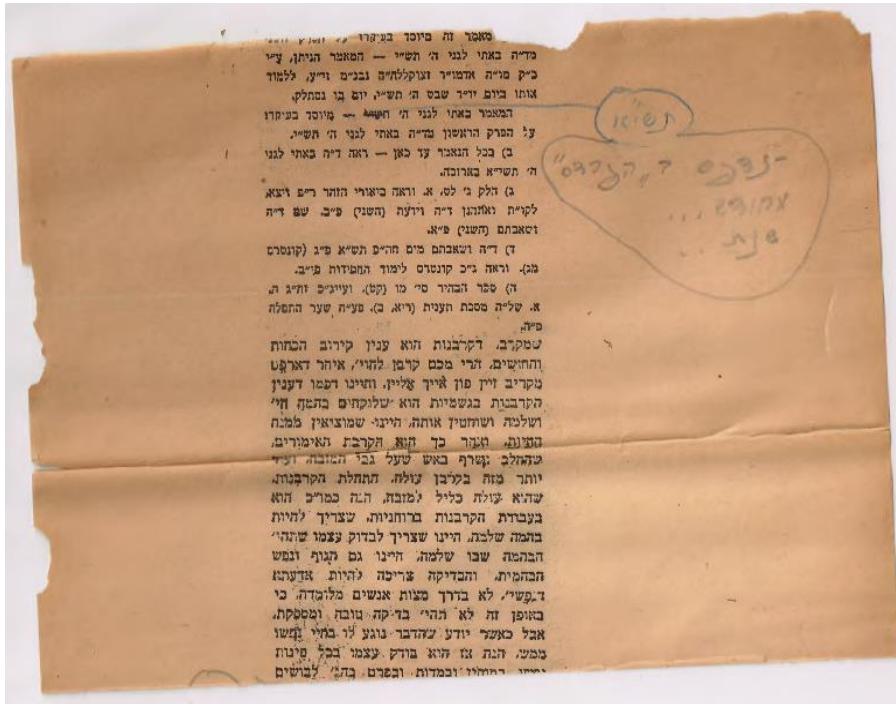 מאמר זה מיוסד בעיקרו על הפרק השני
מד״ה באתי לגני ה׳ תש״י — המאמר הניתן, ע״י
כ״ק מו״ח אדמו״ר זצוקללה״ה נבג״מ זי״ע, ללמוד
אותו ביום יו״ד שבט ה׳ תש״י, יום בו נסתלק.
המאמר באתי לגני ה׳ — מיוסד בעיקרו
תשי״א
על הפרק הראשון מד״ה באתי לגני ה׳ תש״י.
ב) בכל הנאמר עד כאן — ראה ד״ה באתי לגני
ה׳ תשי״א בארוכה.
־נדפס ב״הפרדס״
...
שנת ...
ג) חלק ג׳ לס, א. וראה ביאורי הזהר ר״פ ויצא,
לקו״ת ואתחנן ד״ה וידעת (השני) פ״ב. שם ד״ה
ושאבתם (השני) פ״א.
ד) ד״ה ושאבתם מים תש״א פ״ג (קונטרס
מג). וראה ג״כ קונטרס לימוד החסידות פי״ב.
ה) ספר הבהיר סי׳ מו (קט). ועייג״כ זח״ג ה,
א. של״ה מסכת תענית (ריא, ב). פע״ח שער התפלה
פ״ה.
שמקרב, דקרבנות הוא ענין קירוב הכחות
והחושים. הרי מכם קרבן להוי׳, איהר דארפט
מקריב זיין פון אייך אליין, והיינו דכמו דענין
הקרבנות בגשמיות הוא שלוקחים בהמה חי׳
ושלמה ושוחטין אותה, היינו שמוציאין ממנה
החיות, ואחר כך הוא הקרבת האימורים,
שהחלב נשרף באש שעל גבי המזבח, ועוד
יותר מזה בקרבן עולה, התחלת הקרבנות,
שהוא עולה כליל למזבח, הנה כמו״כ הוא
בעבודת הקרבנות ברוחניות, שצריך להיות
בהמה שלמה, היינו שצריך לבדוק עצמו שתהי׳
הבהמה שבו שלמה, היינו גם הגוף ונפש
הבהמית, והבדיקה צריכה להיות אדעתא
דנפשי׳, לא בדרך מצות אנשים מלומדה, כי
באופן זה לא תהי׳ בדיקה טובה ומספקת,
אבל כאשר יודע שהדבר נוגע לו בחיי נפשו
ממש, הנה אז הוא בודק עצמו בכל פינות
נפשו ובמדות ובפרט בהג׳ לבושים